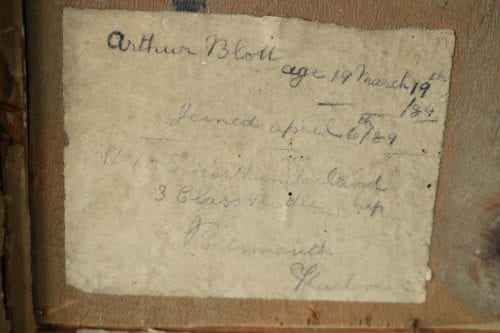 Arthur Blott
age 19 March 19th
/89
Joined april 6th/89
Northumberland
3 Class
Portsmouth